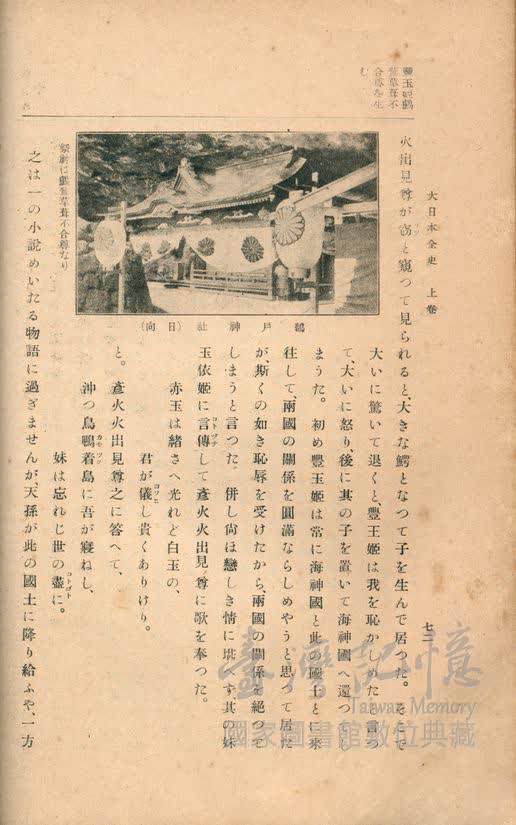 大日本全史　上卷
七二
豐玉姬鸕
鶿草葺不
合尊を生
む
火出見尊が窃と窺つて見られると、大きな鰐となつて子を生んで居つた。そこで
大いに驚いて退くと、豐玉姬は我を恥かしめたと言つ
て、大いに怒り、後に其の子を置いて海神國へ還つてし
まうた。初め豐玉姬は常に海神國と此の國土とに來
往して、兩國の關係を圓滿ならしめやうと思つて居た
が、斯くの如き恥辱を受けたから、兩國の關係を絕つて
しまうと言つた。併し尙ほ戀しき情に堪へず、其の妹
玉依姬に言傳して彥火火出見尊に歌を奉つた。
赤玉は緖さへ光れど白玉の、
君が儀し貴くありけり。
と。彥火火出見尊之に答へて、
沖つ鳥鴨着島に吾が寢ねし、
妹は忘れじ世の盡に。
之は一の小說めいたる物語に過ぎませんが、天孫が此の國土に降り給ふや、一方
鵜戶神社（日向）
祭神は鸕鶿草葺不合尊なり
臺灣記憶
Taiwan Memory
國家圖書館數位典藏